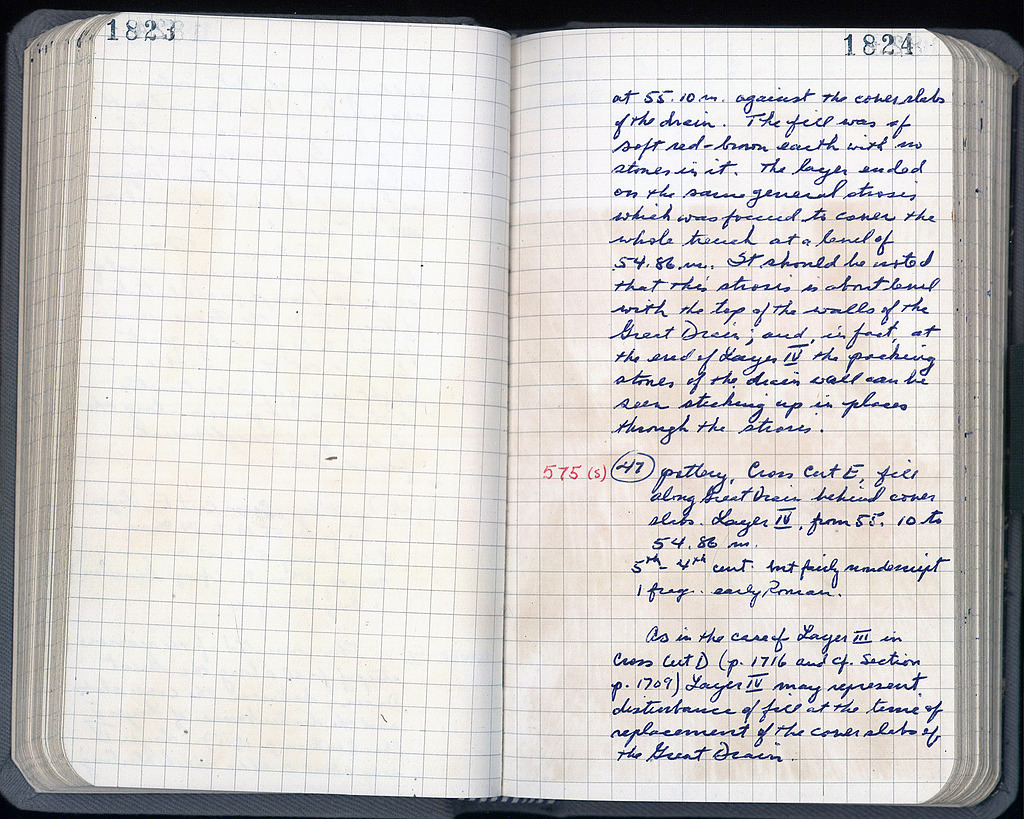 1823
1824
at 55.10 m. against the cover slabs
of the drain. The fill was of
soft red-brown earth with no
stones in it. The layer ended
on the same general strosis
which was found to cover the
whole trench at a level of
54.86 m. It should be noted
that this strosis is about level
with the top of the walls of the
Great Drain; and, in fact, at
the end of Layer IV the packing
stones of the drain wall can be
seen sticking up in places
through the strosis.
575 (s) 47 pottery, Cross Cut E, fill
along Great Drain behind cover
slabs. Layer IV, from 55.10 to
54.86 m.
5th - 4th cent. but fairly nondescript
1 frag. early Roman.
As in the case of Layer III in
Cross Cut D (p. 1716 and cf. Section
p. 1709) Layer IV may represent
disturbance of fill at the time of
replacement of the cover slabs of
the Great Drain.